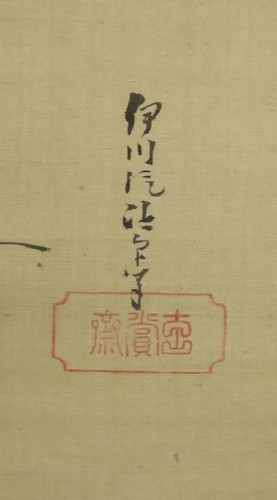 伊川院法印筆
玄賞齋